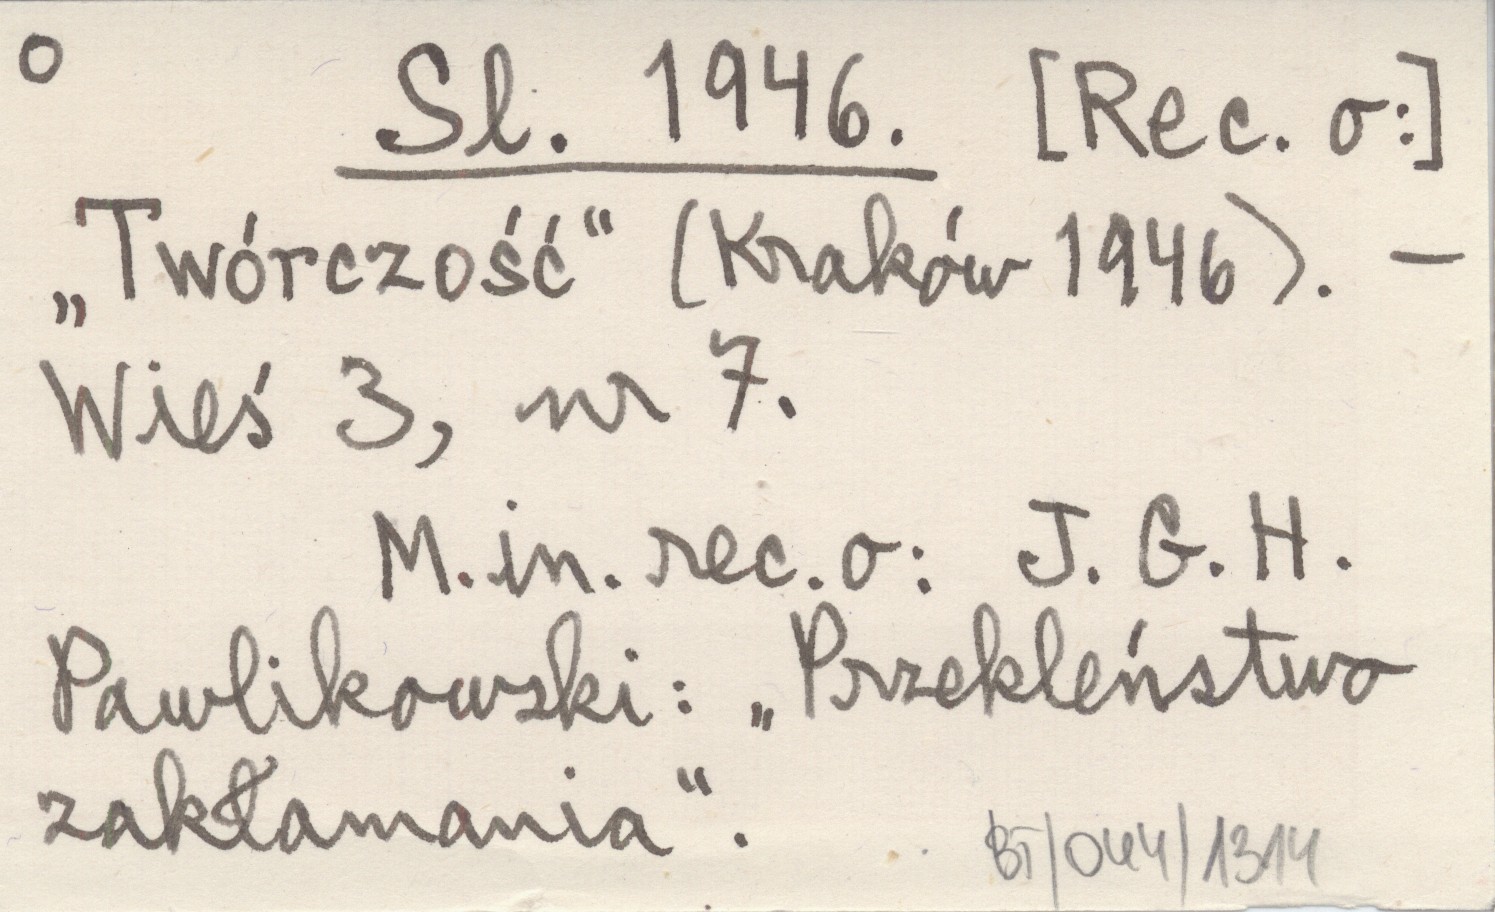 o Sl. 1946. [Rec. o:]
„Twórczość“ (Kraków 1946). —
Wieś 3, nr 7.
M.in. rec. o: J. G. H.
Pawlikowski: „Przekleństwo
zakłamania“.
BT/044/1314